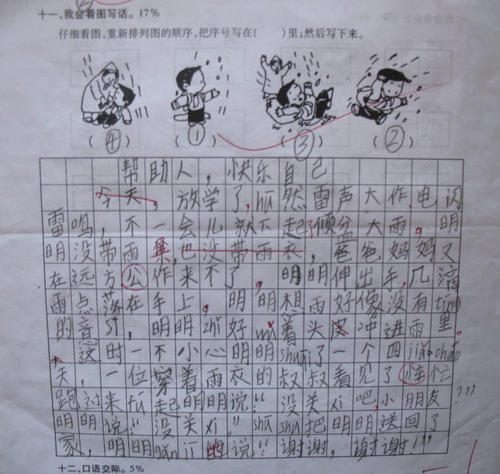 十一、我会看图写话。17%
仔细看图,重新排列图的顺序,把序号写在( )里;然后写下来。
(④) (①) (③) (②)
帮助人,快乐自己
今天,放学了,hū然雷声大作,电闪
雷鸣,不一会儿就下起了倾盆大雨。明
明没带雨具,也没带雨衣,爸爸妈妈又
在远方公作来不了。明明伸出手,几滴
雨点落在手上。明明想雨好像没有
的音,明明zhǐ好着头皮冲进雨里。
这时一不小心明明shuāi了一个四jiǎocháo
天,一位穿着雨衣的叔叔看见了连忙
跑过来fú起明明说:“没关xi吧,小朋友”
明明说:“没关xi”shūshu把明明送回了
家,明明gǎnjī地说:“谢谢,谢谢!”
十二、口语交际。5%